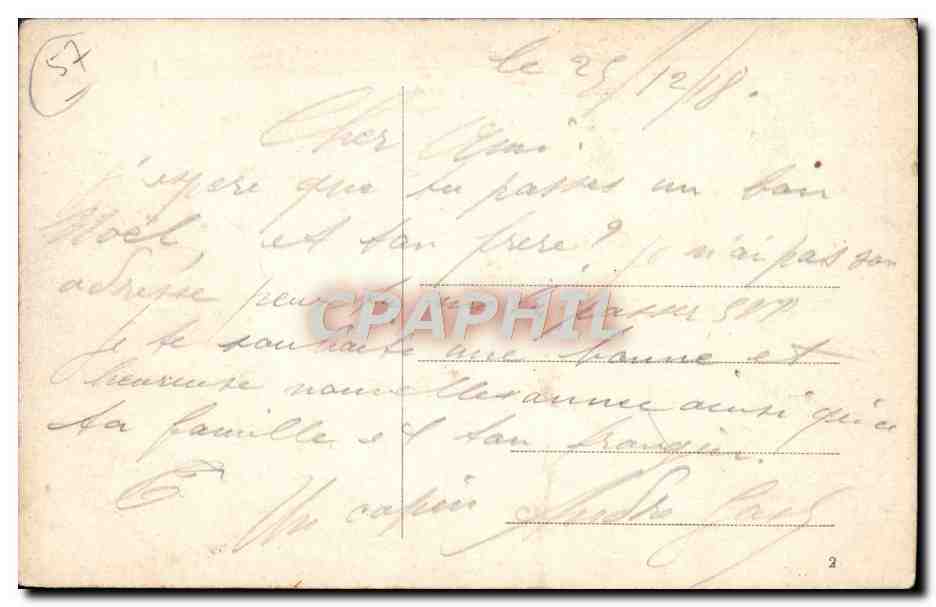 57
le 25/12/18.
Cher Ami.
j'espère que tu passes un bon
Noël et ton frère? je n'ai pas son
adresse passer SVP
CPARHIL
je te souhaite une bonne et
heureuse nouvelles année ainsi qu'à
ta famille et ton frangin.
Un copin André
2